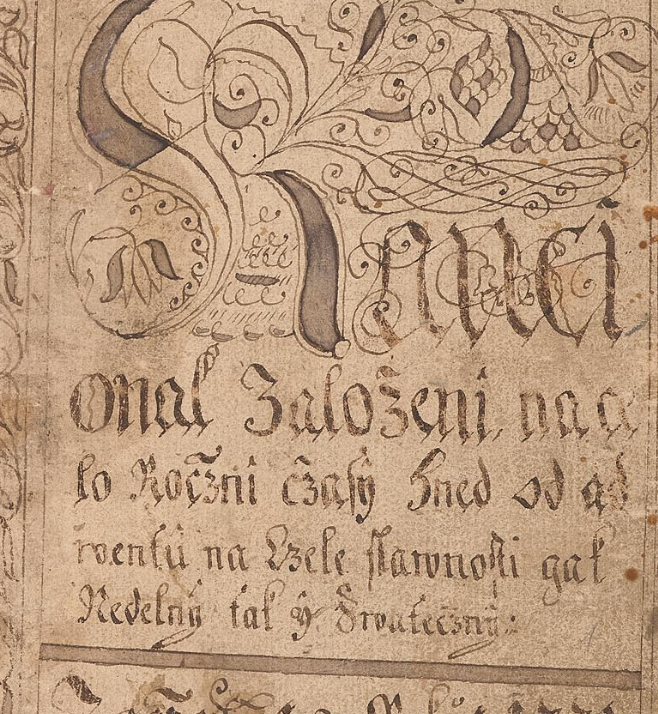 Kanci
onal Založeni na ce
loRočžni čžasy hned od ad
wentu na wssele slawnosti gak
Nedelny tak y Swatečžny: